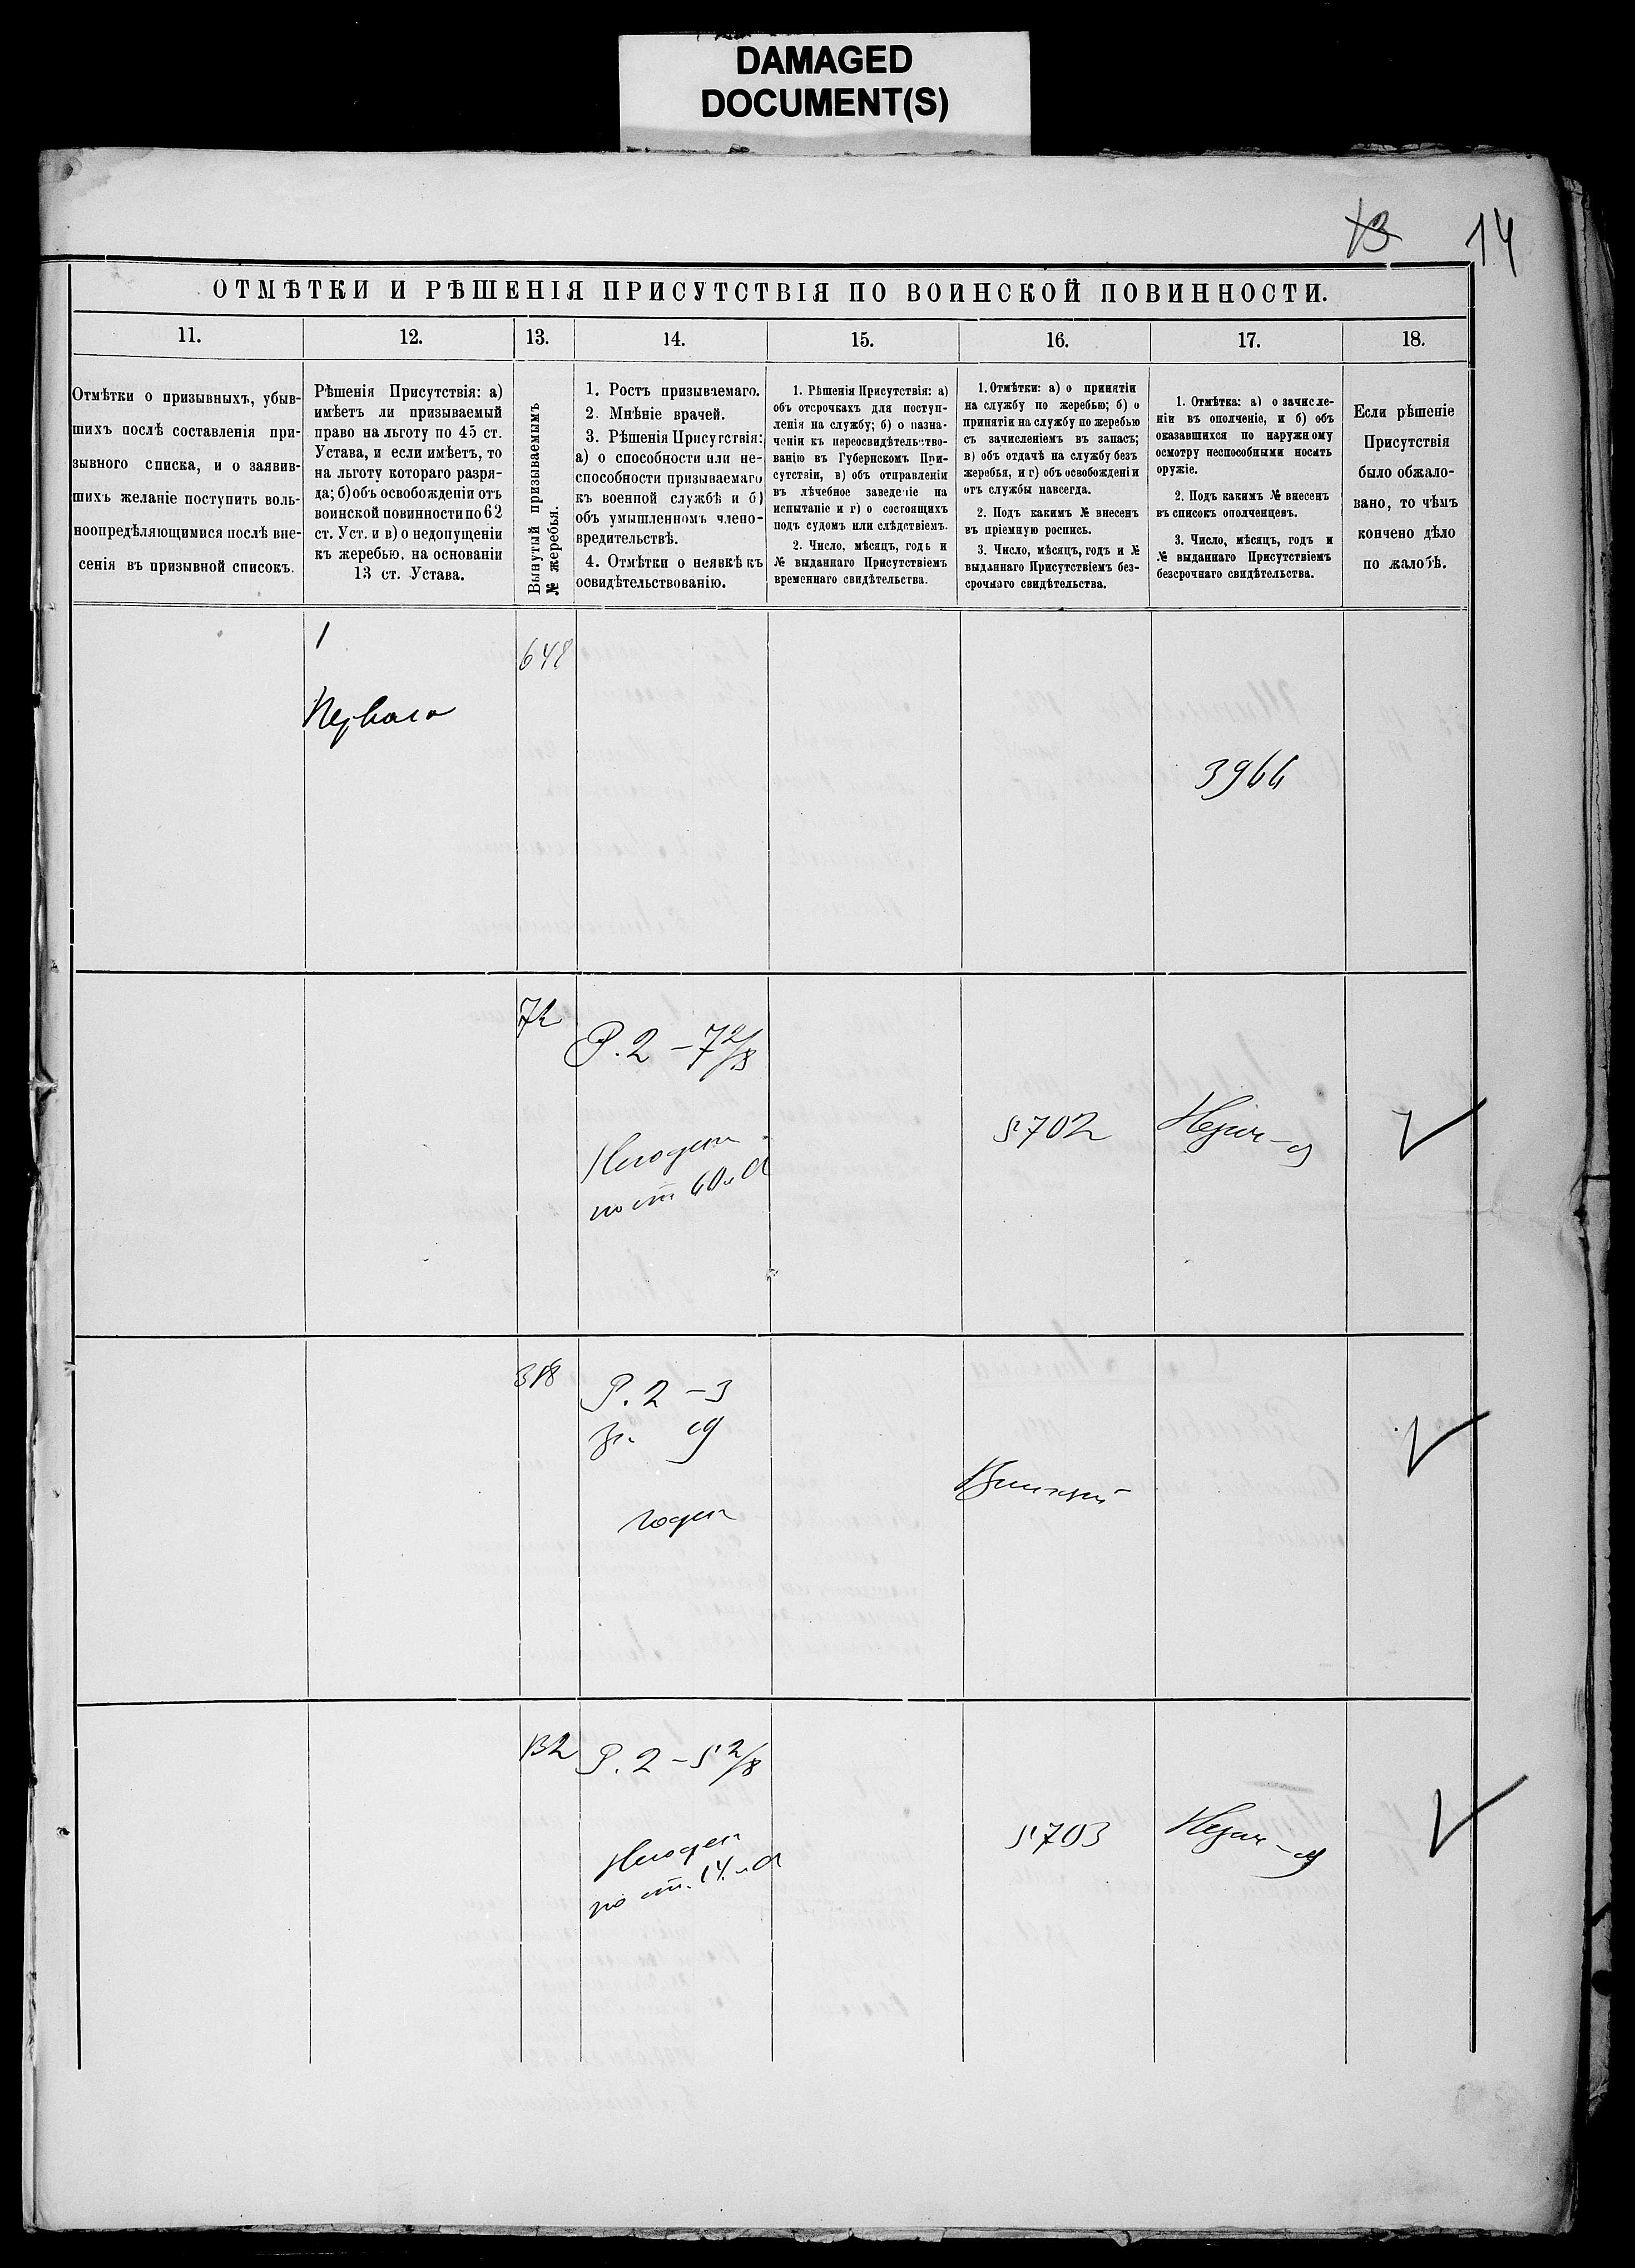 DAMAGED
DOCUMENT(S)
13 14
ОТМѢТКИ И РѢШЕНІЯ ПРИСУТСТВІЯ ПО ВОИНСКОЙ ПОВИННОСТИ.
11.
Отмѣтки о призывныхъ, убыв-
шихъ послѣ составленія при-
зывного списка, и о заявив-
шихъ желаніе поступить воль-
ноопредѣляющимися послѣ вне-
сенія въ призывной списокъ.
12.
Рѣшенія Присутствія: а)
имѣетъ ли призываемый
право на льготу по 45 ст.
Устава, и если имѣетъ, то
на льготу котораго разря-
да; б) объ освобожденіи отъ
воинской повинности по 62
ст. Уст. и в) о недопущеніи
къ жеребью, на основаніи
13 ст. Устава.
13.
Вынутый призываемымъ
№ жеребья.
14.
1. Ростъ призываемаго.
2. Мнѣніе врачей.
3. Рѣшенія Присутствія:
а) о способности или не-
способности призываемаго
къ военной службѣ и б)
объ умышленномъ члено-
вредительствѣ.
4. Отмѣтки о неявкѣ къ
освидѣтельствованію.
15.
1. Рѣшенія Присутствія: а)
объ отсрочкахъ для поступ-
ленія на службу; б) о назна-
ченіи къ переосвидѣтельство-
ванію въ Губернскомъ При-
сутствіи, в) объ отправленіи
въ лѣчебное заведеніе на
испытаніе и г) о состоящихъ
подъ судомъ или слѣдствіемъ.
2. Число, мѣсяцъ, годъ и
№ выданнаго Присутствіемъ
временнаго свидѣтельства.
16.
1. Отмѣтки: а) о принятіи
на службу по жеребью; б) о
принятіи на службу по жеребью
съ зачисленіемъ въ запасъ;
в) объ отдачѣ на службу безъ
жеребья, и г) объ освобожденіи
отъ службы навсегда.
2. Подъ какимъ № внесенъ
въ пріемную роспись.
3. Число, мѣсяцъ, годъ и №
выданнаго Присутствіемъ без-
срочнаго свидѣтельства.
17.
1. Отмѣтка: а) о зачисле-
ніи въ ополченіе, и б) объ
оказавшихся по наружному
осмотру неспособными носить
оружіе.
2. Подъ какимъ № внесенъ
въ списокъ ополченцевъ.
3. Число, мѣсяцъ, годъ и
№ выданнаго Присутствіемъ
безсрочнаго свидѣтельства.
18.
Если рѣшеніе
Присутствія
было обжало-
вано, то чѣмъ
кончено дѣло
по жалобѣ.
1
648
Перваго
3966
72
Р. 2 – 7 2/8
Негоденъ
по ст 60 л А
5702
318
Р. 2 – 3
годен
132
Р. 2 – 5 2/8
Негоден
по ст. 14 л А
5703